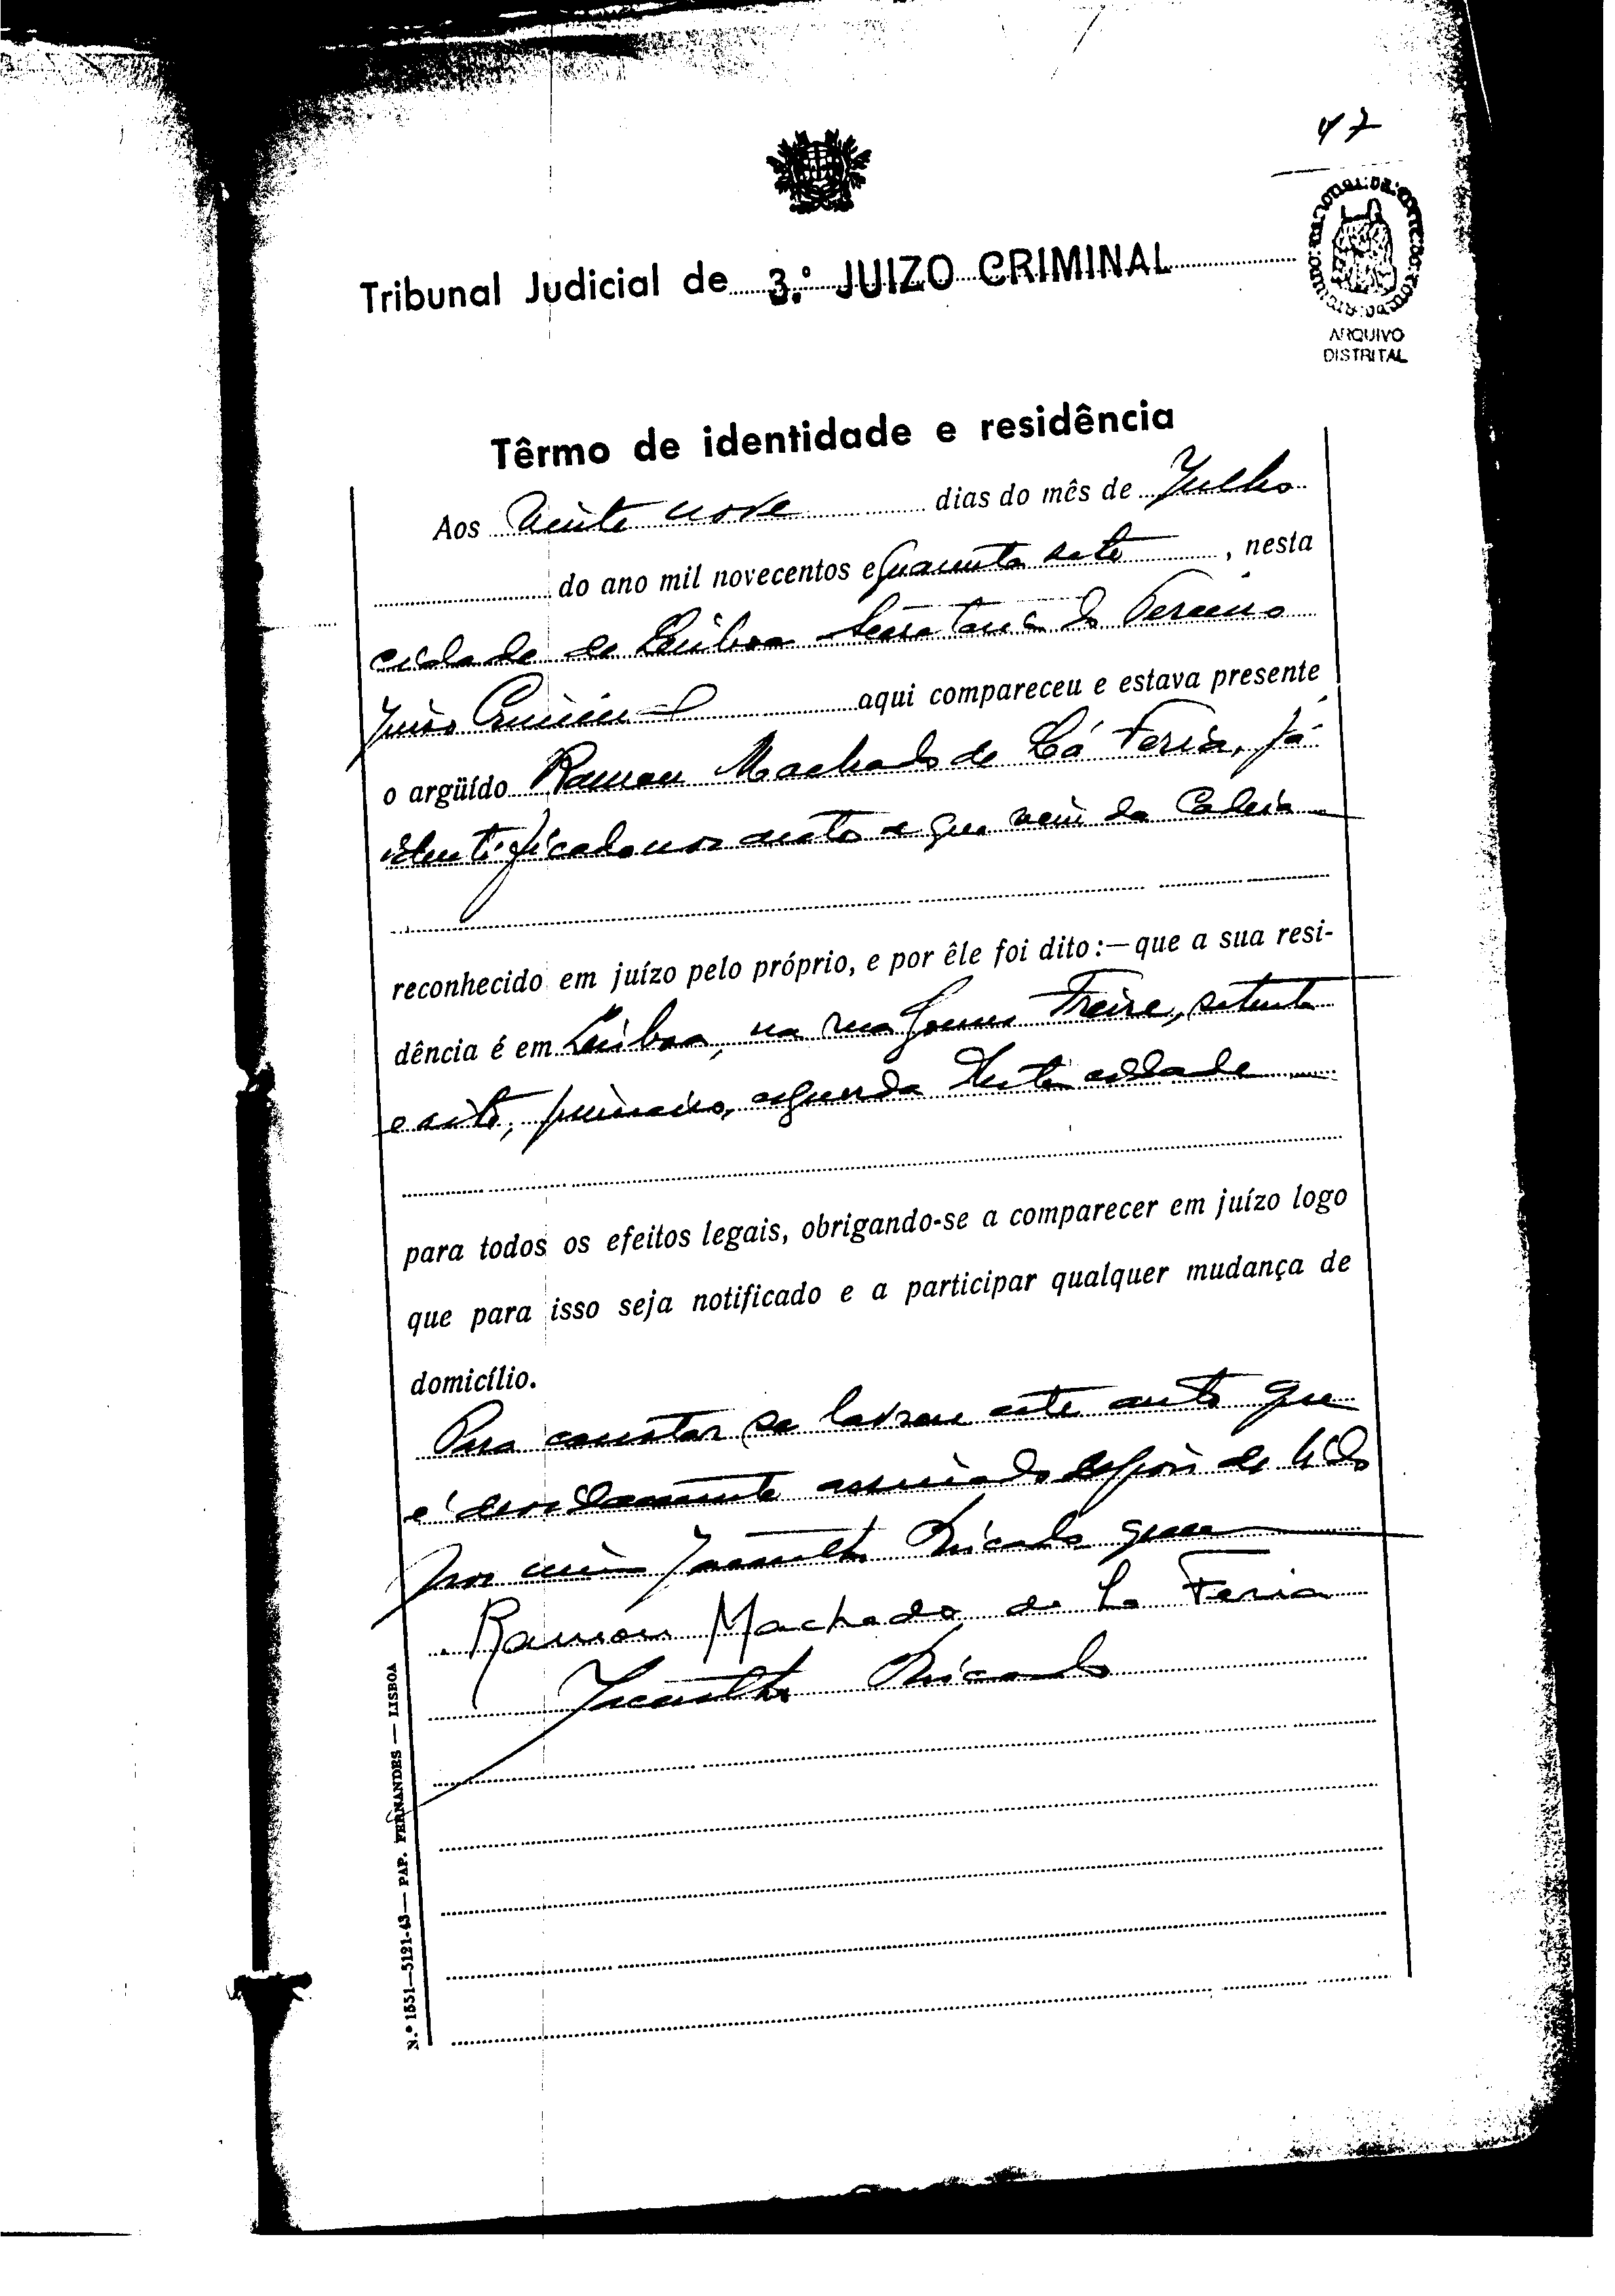 47
Tribunal Judicial de 3.º JUIZO CRIMINAL
ARQUIVO
DISTRITAL
Têrmo de identidade e residência
Aos Vinte nove dias do mês de Julho
do ano mil novecentos e quarenta sete, nesta
cidade de Lisboa Secretaria do Terceiro
Juizo Criminal aqui compareceu e estava presente
o argüído Ramon Machado de Lá Feria, já
identificado nos autos e que vem da Cadeia
reconhecido em juízo pelo próprio, e por êle foi dito:—que a sua resi-
dência é em Lisboa, na rua Gomes Freire, setenta
e sete, primeiro, esquerdo desta cidade
para todos os efeitos legais, obrigando-se a comparecer em juízo logo
que para isso seja notificado e a participar qualquer mudança de
domicílio.
Para constar se lavrou este auto que
é devidamente assinado depois de lido
por mim
Ramon Machado de La Feria
N.º 1551—5121-43— PAP. FERNANDES — LISBOA